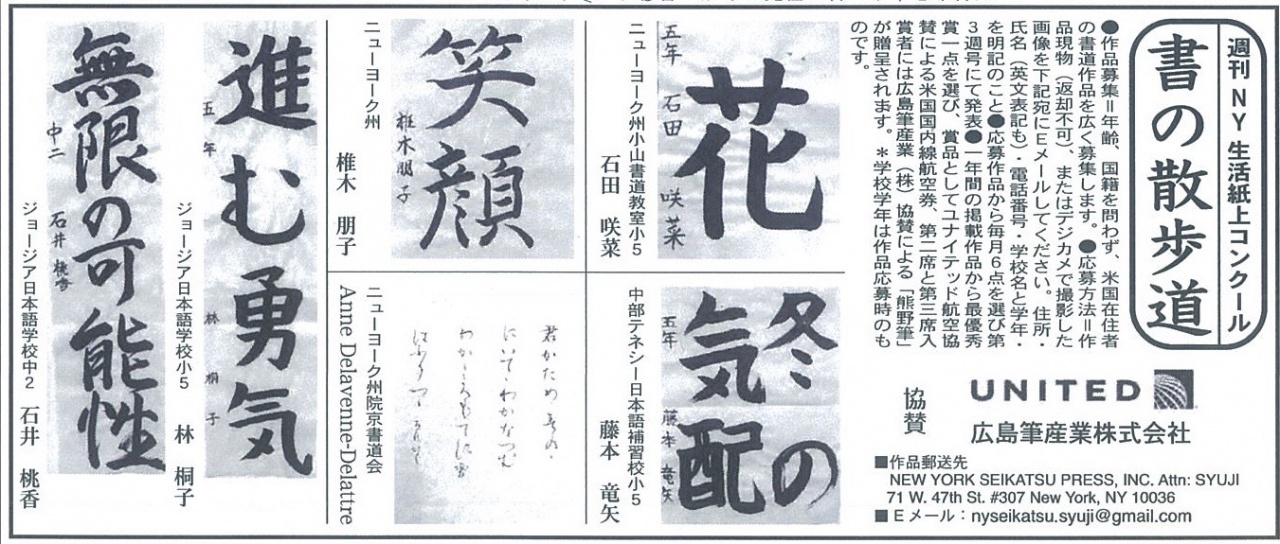 週刊NY生活紙上コンクール
書の散歩道
●作品募集=年齢、国籍を問わず、米国在住者
の書道作品を広く募集します。●応募方法=作
品現物（返却不可）、またはデジカメで撮影した
画像を下記宛にEメールしてください。住所・
氏名（英文表記も）・電話番号・学校名と学年・
を明記のこと●応募作品から毎月6点を選び第
3週号にて発表●一年間の掲載作品から最優秀
賞一点を選び、賞品としてユナイテッド航空協
賛による米国国内線航空券、第二席と第三席入
賞者には広島筆産業（株）協賛による「熊野筆」
が贈呈されます。*学校学年は作品応募時のも
のです。
協賛
UNITED
広島筆産業株式会社
■作品郵送先
NEW YORK SEIKATSU PRESS, INC. Attn: SYUJI
71 W. 47th St. #307 New York, NY 10036
■Eメール：nyseikatsu.syuji@gmail.com
花
五年 石田 咲菜
ニューヨーク州小山書道教室小5
石田 咲菜
冬の
気配
五年 藤本 竜矢
中部テネシー日本語補習校小5
藤本 竜矢
笑顔
椎木朋子
ニューヨーク州
椎木 朋子
君がため春の
ニューヨーク州院京書道会
Anne Delavenne-Delattre
進む勇気
五年 林 桐子
ジョージア日本語学校小5 林 桐子
無限の可能性
中二 石井 桃香
ジョージア日本語学校中2 石井 桃香